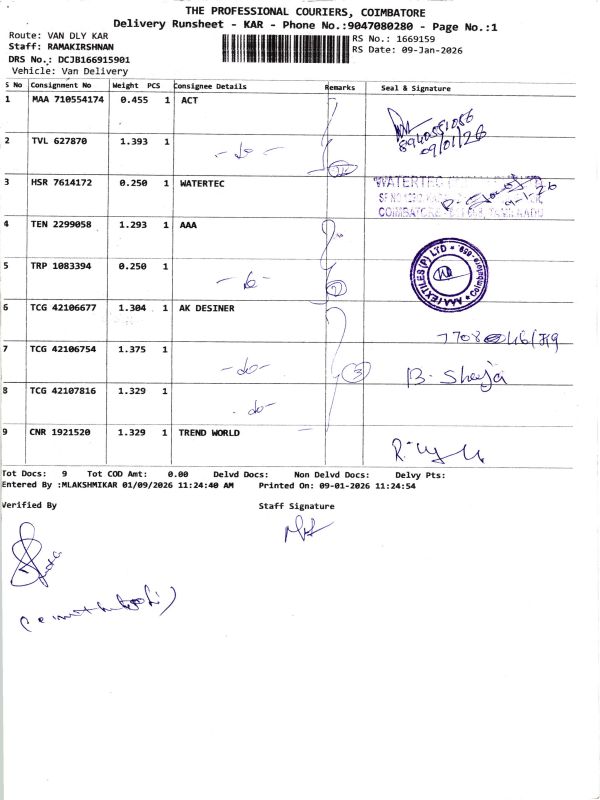 THE PROFESSIONAL COURIERS, COIMBATORE
Delivery Runsheet - KAR - Phone No.:9047080280 - Page No.:1
Route: VAN DLY KAR
RS No.: 1669159
Staff: RAMAKIRSHNAN
RS Date: 09-Jan-2026
DRS No.: DCJB166915901
Vehicle: Van Delivery
S No Consignment No Weight PCS Consignee Details Remarks Seal & Signature
1 MAA 710554174 0.455 1 ACT
8940551086
09/01/26
2 TVL 627870 1.393 1 -do-
3 HSR 7614172 0.250 1 WATERTEC
WATERTEC
COIMBATORE
4 TEN 2299058 1.293 1 AAA
5 TRP 1083394 0.250 1 -do- 2
AAA TEXTILES (P) LTD * Coimbatore
6 TCG 42106677 1.304 1 AK DESINER
7 TCG 42106754 1.375 1 -do- 3
B. Sheeja
8 TCG 42107816 1.329 1 -do-
9 CNR 1921520 1.329 1 TREND WORLD
Tot Docs: 9 Tot COD Amt: 0.00 Delvd Docs: Non Delvd Docs: Delvy Pts:
Entered By :MLAKSHMIKAR 01/09/2026 11:24:40 AM Printed On: 09-01-2026 11:24:54
Verified By Staff Signature